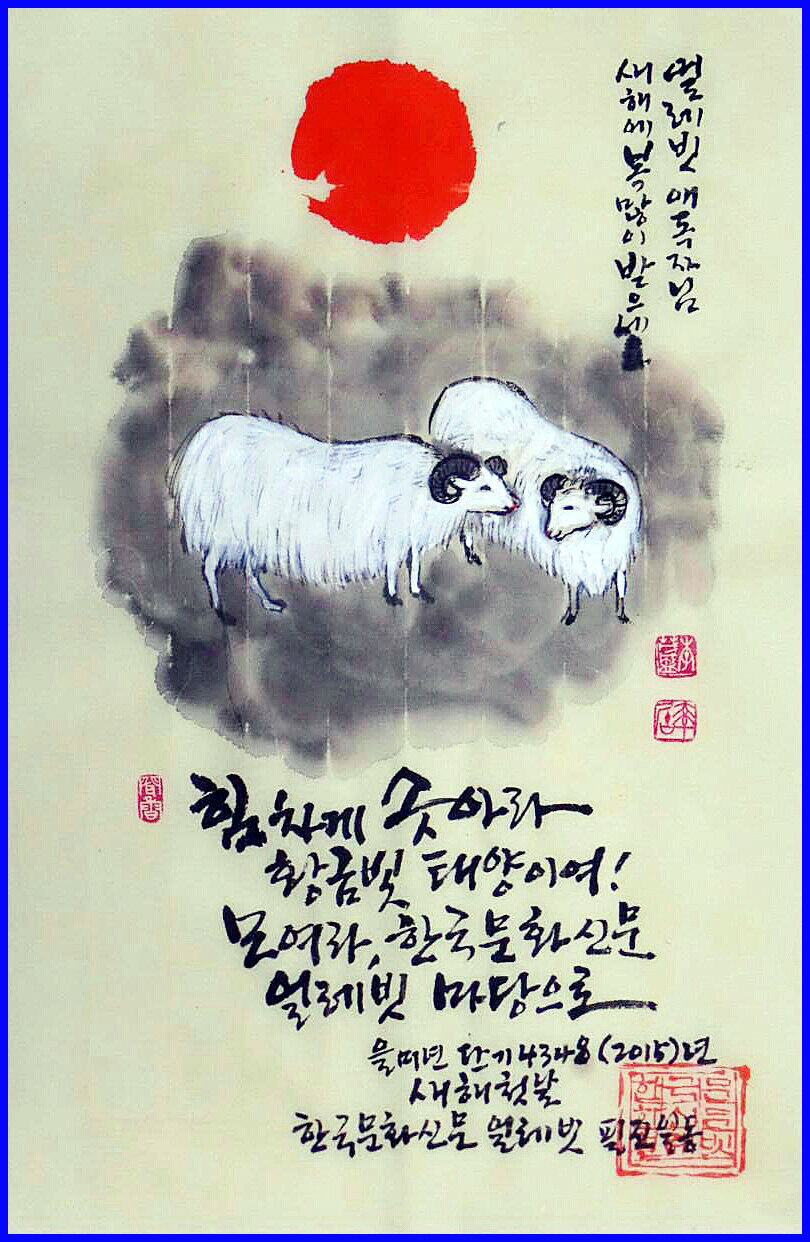 얼레빗 애독자님
새해에 복 많이 받으세요
힘차게 솟아라
황금빛 태양이여!
모여라, 한국문화신문
얼레빗 마당으로
을미년 단기4348(2015)년
새해 첫날
한국문화신문 얼레빗 필진일동